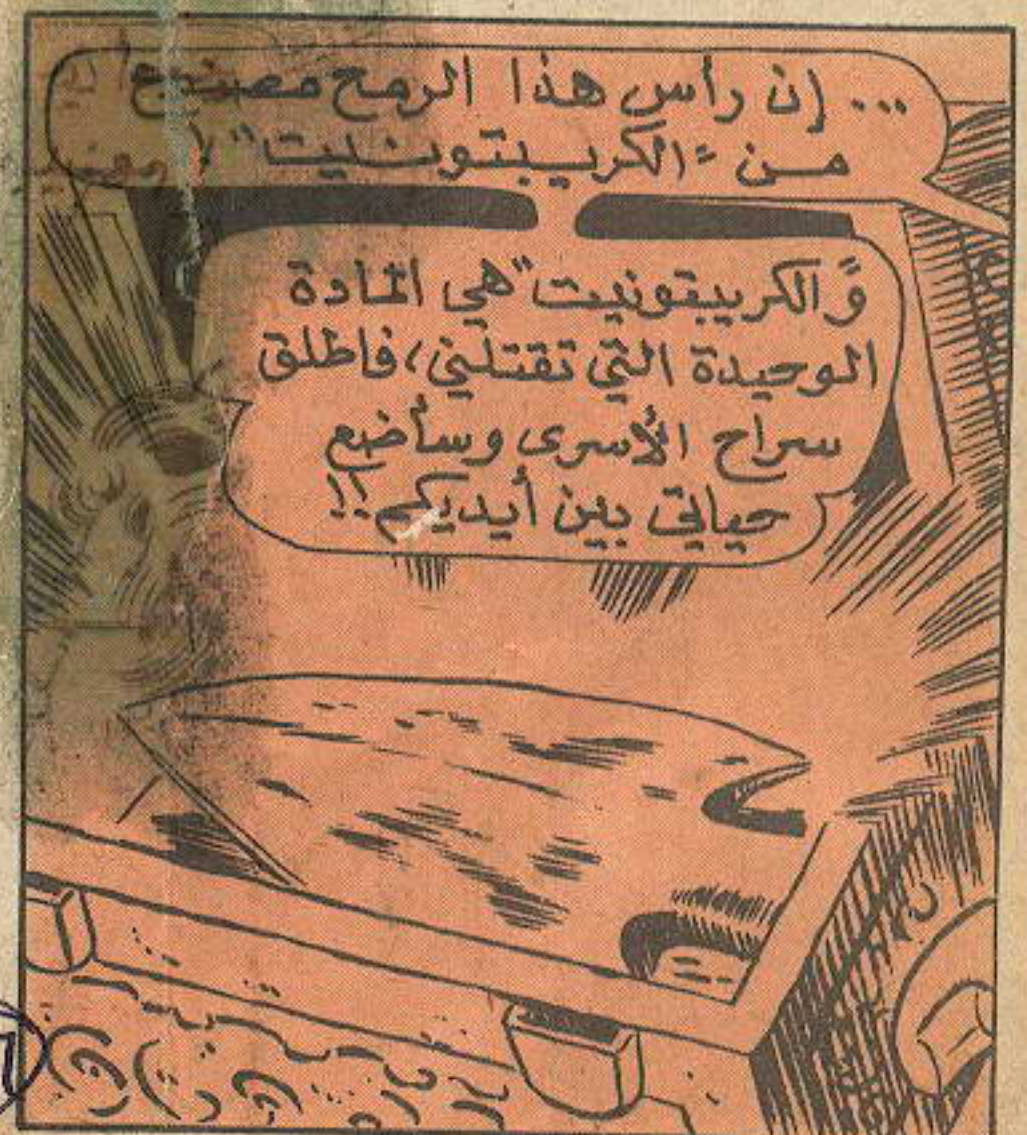 ... إن رأس هذا الرمح مصنوع
من "الكريبتونيت"
و"الكريبتونيت" هي المادة
الوحيدة التي تقتلني، فاطلق
سراح الأسرى وسأضع
حياتي بين أيديكم!!